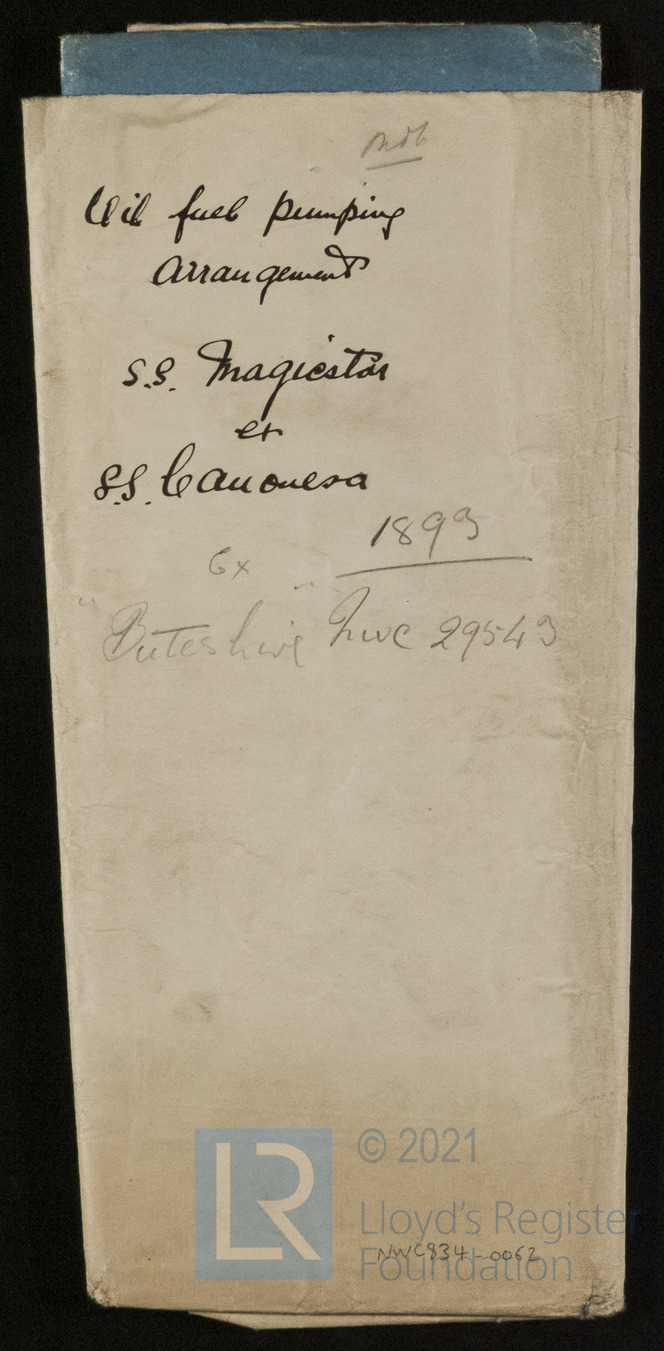 Oil fuel pumping
arrangement
S.S. Magicstar
ex
S.S. Canonesa
1893
Ex
"Buteshire" Nwc 29543
LR
© 2021
Lloyd's Register
Foundation
NWC834-0062